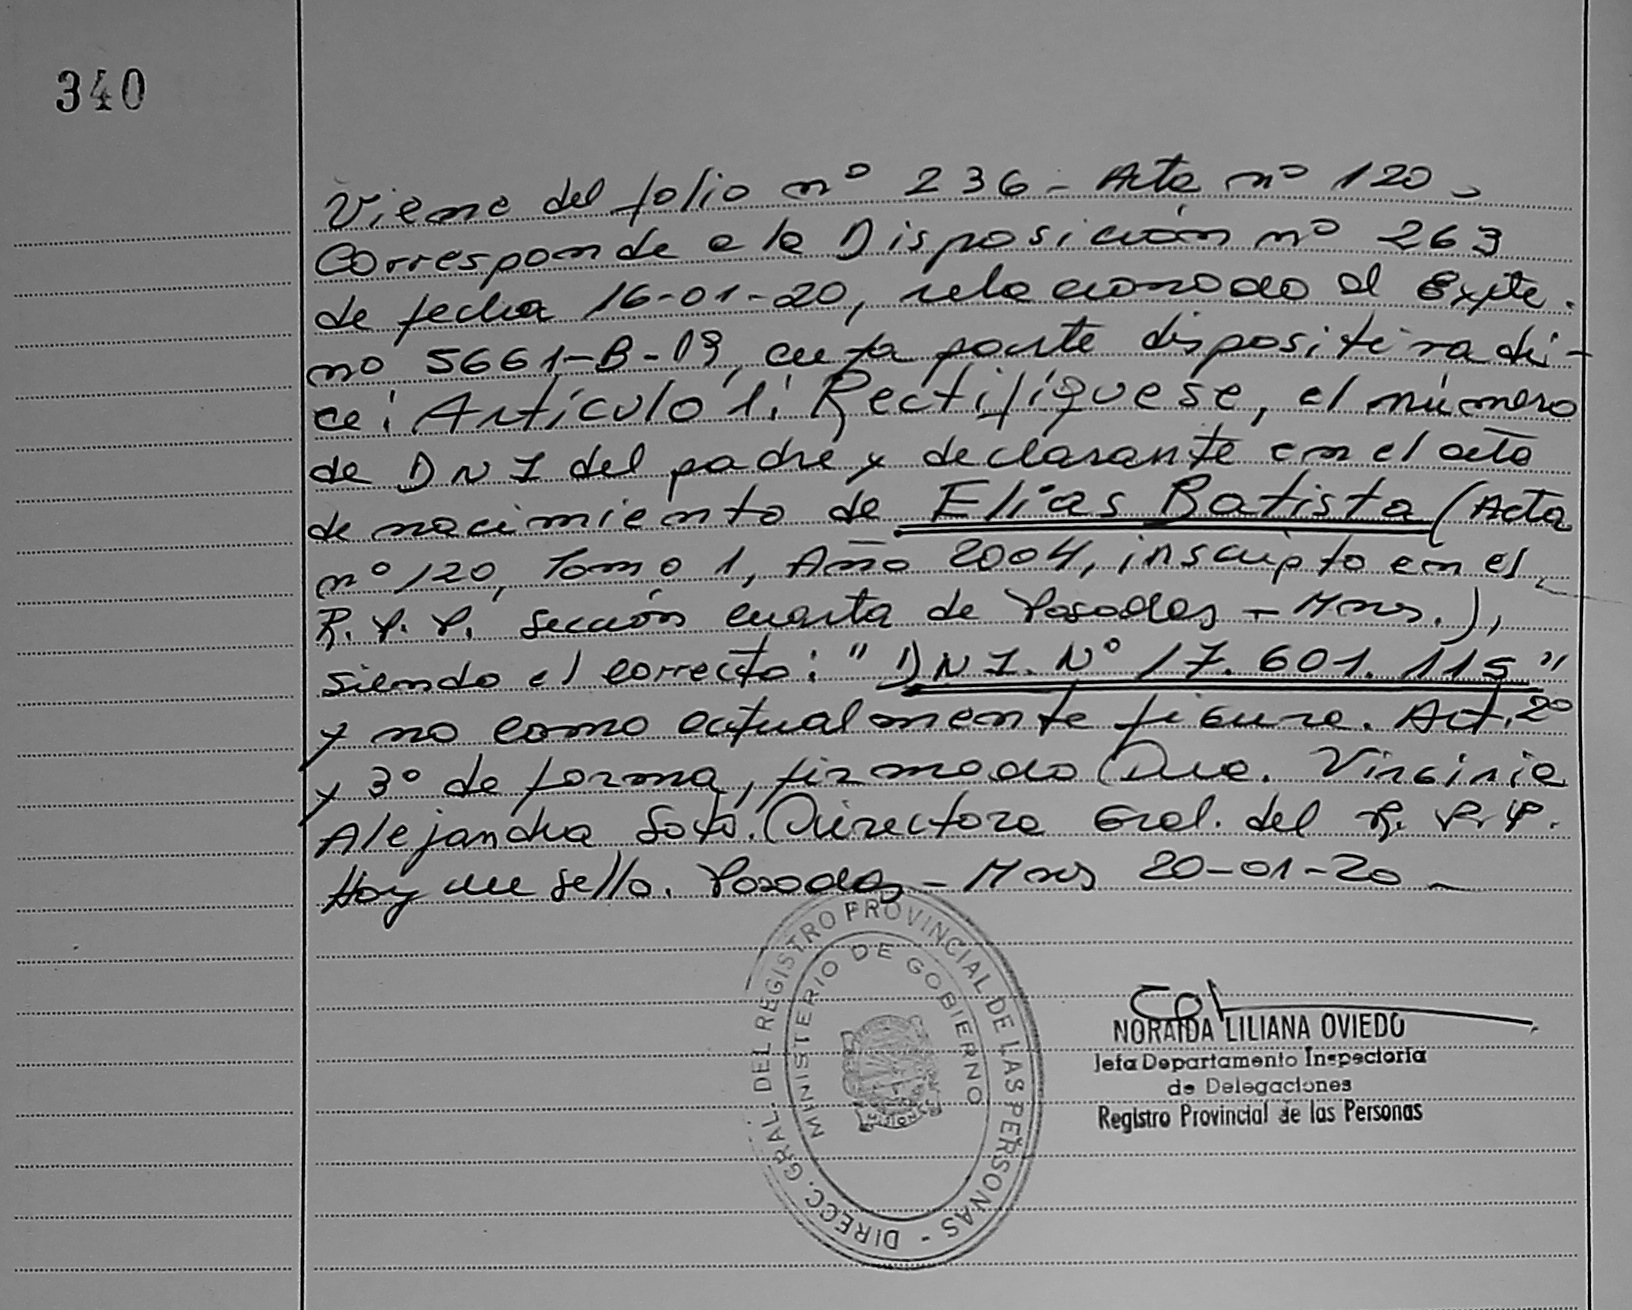 340
Viene del folio nº 236 - Acta nº 120 -
Corresponde a la Disposición nº 263
de fecha 16-01-20, relacionado al Expte.
nº 5661-B-19, cuya parte dispositiva di-
ce: Artículo 1: Rectifíquese, el número
de DNI del padre y declarante en el acta
de nacimiento de Elias Batista (Acta
nº 120, Tomo 1, Año 2004, inscripto en el
R.P.P. Sección cuarta de Posadas - Mnes.),
siendo el correcto: "DNI. Nº 17.601.115"
y no como actualmente figura. Art. 2º
y 3º de forma, firmado Dra. Virginia
Alejandra Soto. Directora Gral. del R.P.P.
Hay un sello. Posadas - Mnes 20-01-20 -
DIRECC. GRAL. DEL REGISTRO PROVINCIAL DE LAS PERSONAS -
MINISTERIO DE GOBIERNO
MISIONES
NORAIDA LILIANA OVIEDO
Jefa Departamento Inspectoría
de Delegaciones
Registro Provincial de las Personas